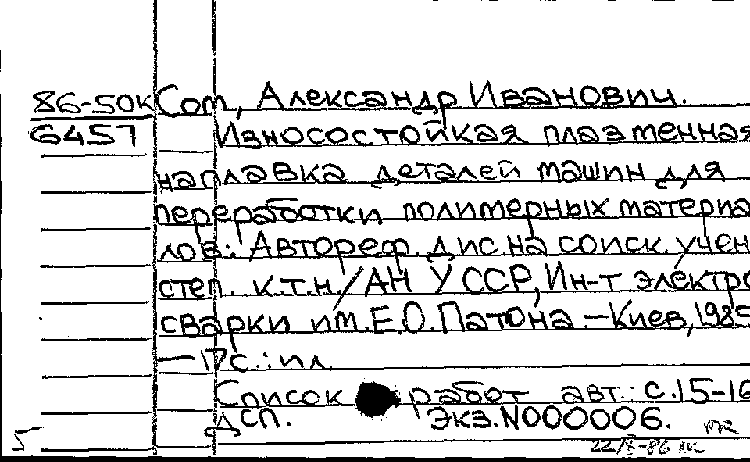 86-50к Сот, Александр Иванович.
6457 Износостойкая плазменная
наплавка деталей машин для
переработки полимерных материа
лов: Автореф. дис. на соиск. учен
степ. к.т.н./АН УССР, Ин-т электро
сварки им. Е.О. Патона. – Киев, 1985
– 17с.: ил.
Список работ авт.: с. 15-16
ДСП. Экз. N000006.
5